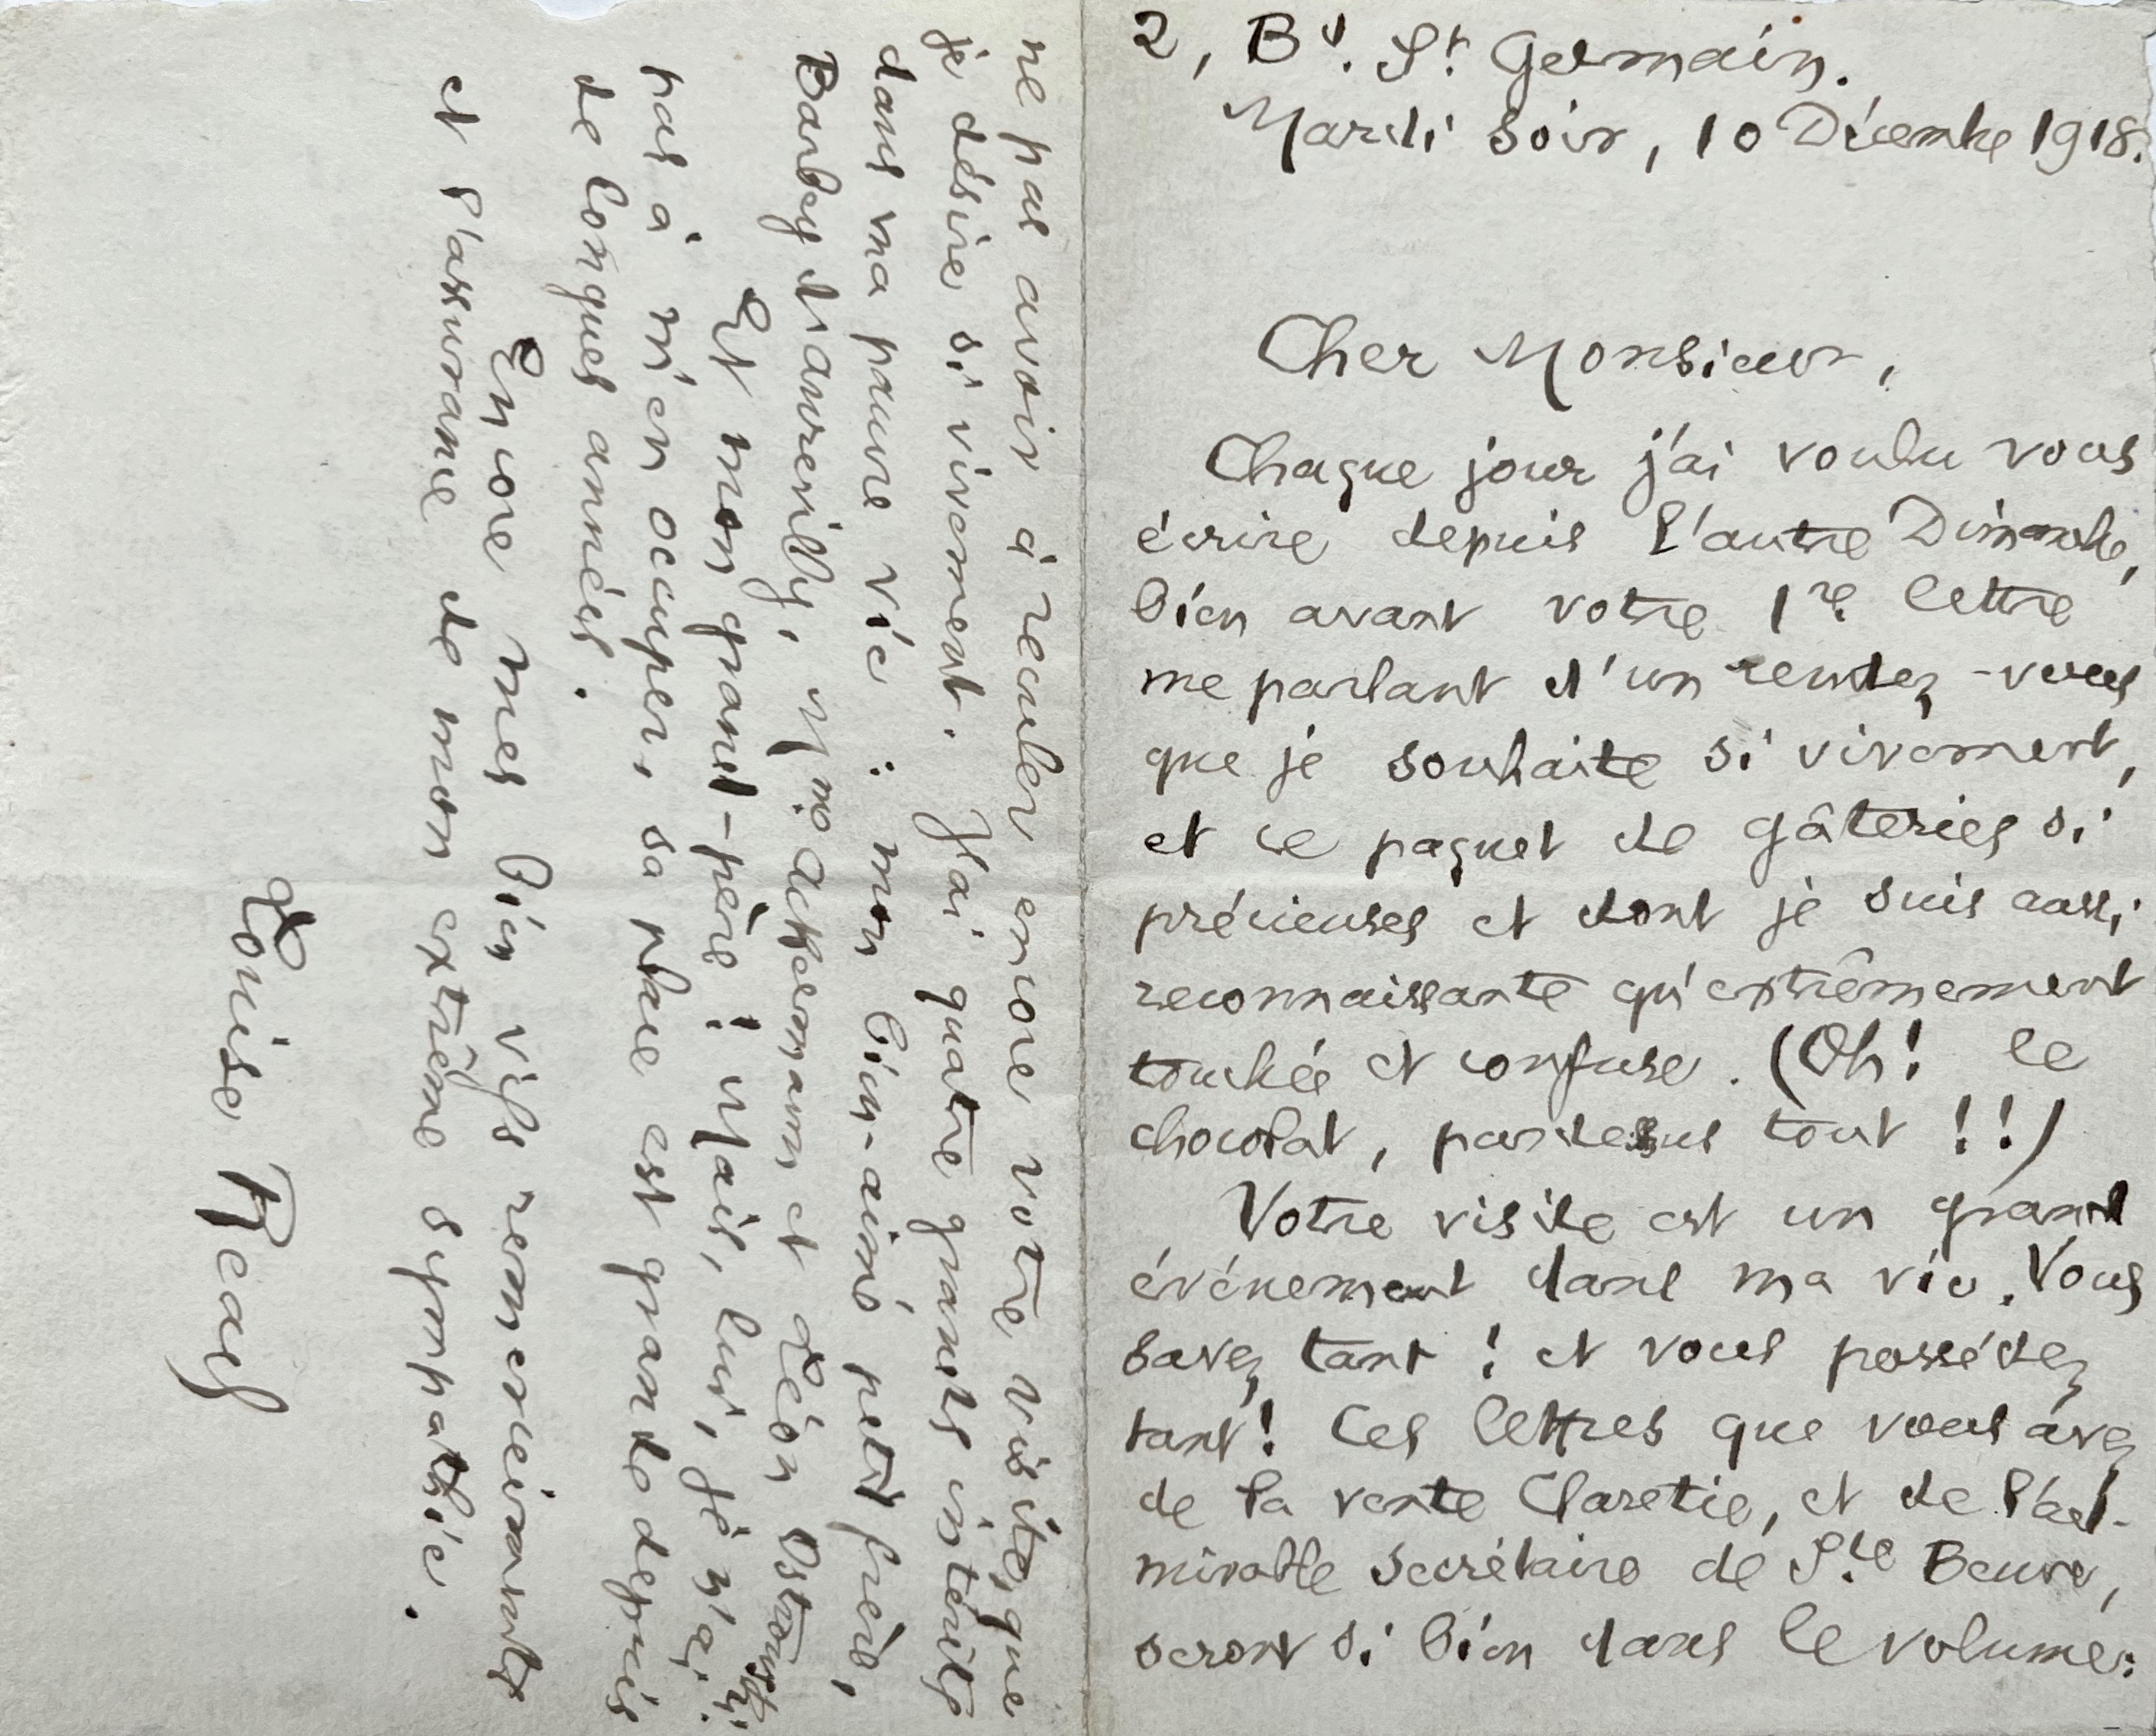 2, Bd. St. Germain.
Mardi soir, 10 Décembre 1918.
Cher Monsieur,
Chaque jour j'ai voulu vous
écrire depuis l'autre Dimanche,
bien avant votre 1re lettre
me parlant d'un rendez-vous
que je souhaite si vivement,
et ce paquet de gâteries si
précieuses et dont je suis aussi
reconnaissante qu'extrêmement
touchée et confuse. (Oh! le
chocolat, pardessus tout!!)
Votre visite est un grand
événement dans ma vie. Vous
savez tant! et vous possédez
tant! Ces lettres que vous avez
de la vente Claretie, et de l'ad-
mirable secrétaire de Ste Beuve,
seront si bien dans le volume:
ne pas avoir à reculer encore votre visite, que
je désire si vivement. J'ai quatre grands intérêts
dans ma pauvre vie: mon bien-aimé petit frère,
Barbey d'Aurevilly, Mme Ackermann et Léon Ostrowski.
Et mon grand-père! Mais, lui, je n'ai
pas à m'en occuper, sa place est grande depuis
de longues années.
Encore mes bien vifs remerciements
et l'assurance de mon extrême sympathie.
Louise Read